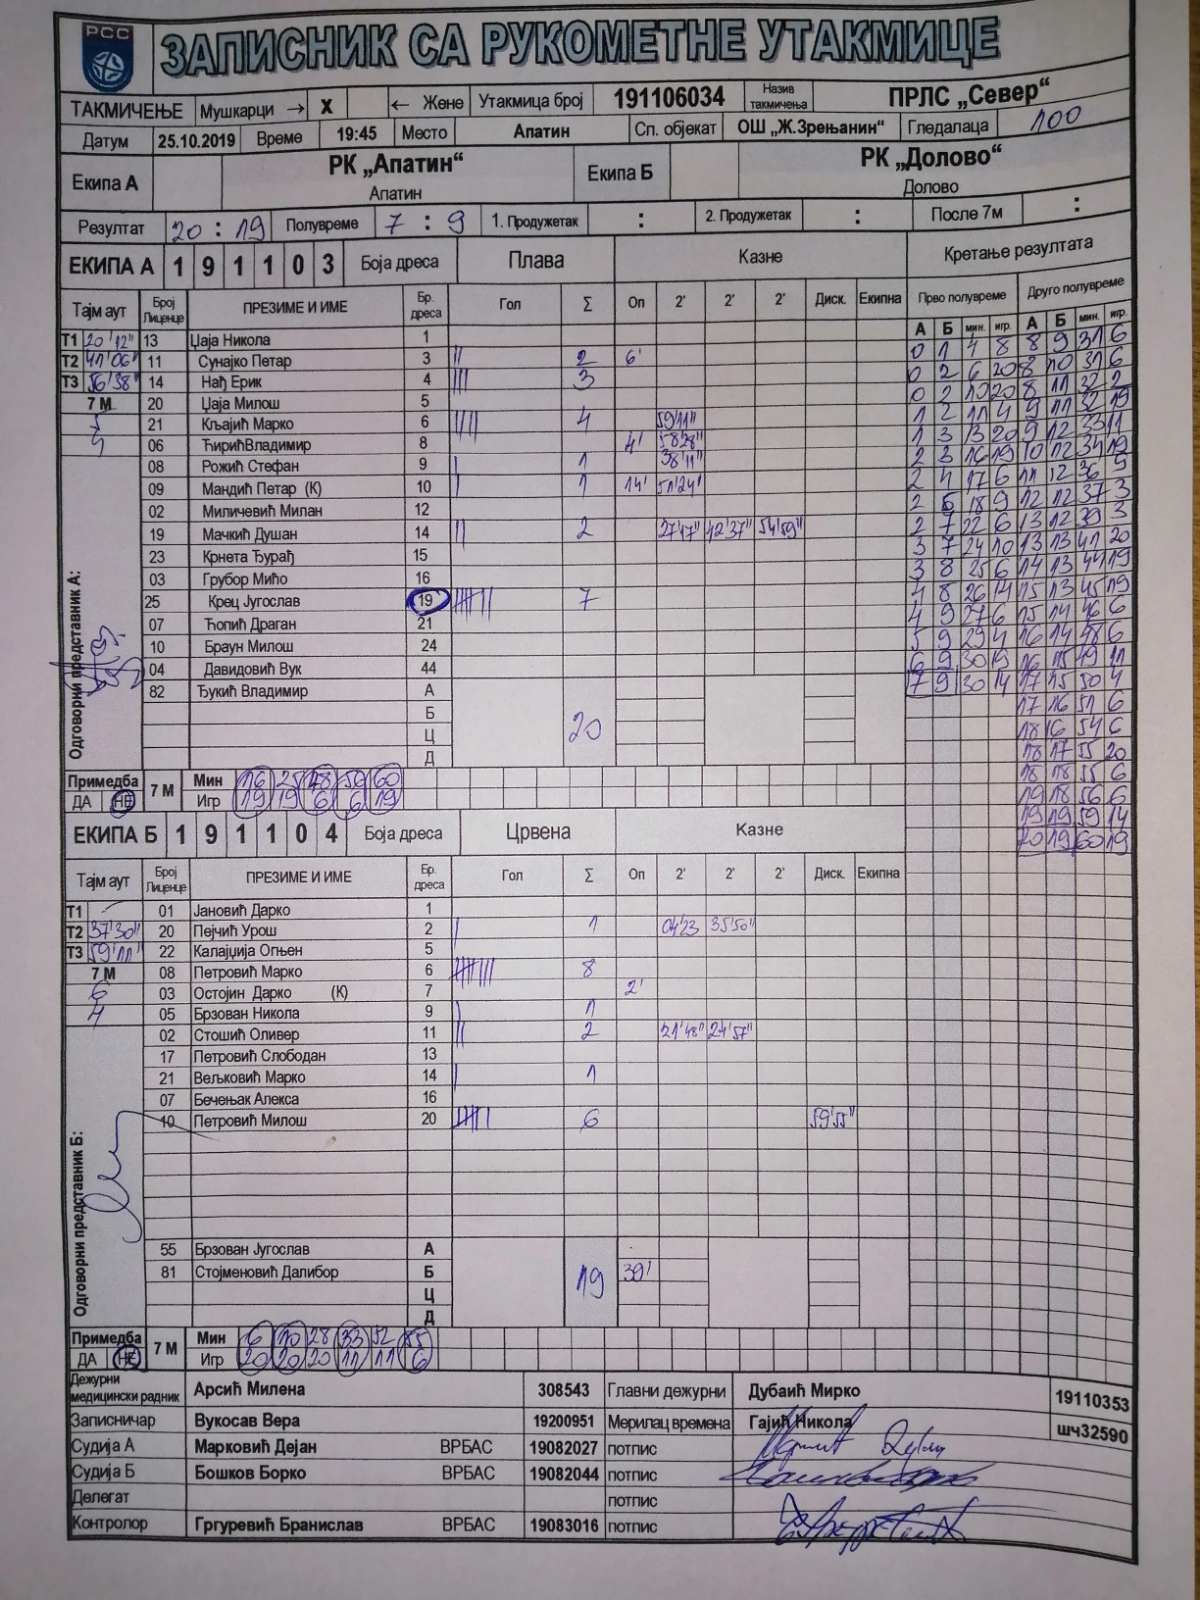 РСС
ЗАПИСНИК СА РУКОМЕТНЕ УТАКМИЦЕ
ТАКМИЧЕЊЕ Мушкарци → X ← Жене Утакмица број 191106034 Назив такмичења ПРЛС „Север“
Датум 25.10.2019 Време 19:45 Место Апатин Сп. објекат ОШ „Ж.Зрењанин“ Гледалаца 100
Екипа А РК „Апатин“ Екипа Б РК „Долово“
Апатин Долово
Резултат 20 : 19 Полувреме 7 : 9 1. Продужетак : 2. Продужетак : После 7м :
ЕКИПА А 1 9 1 1 0 3 Боја дреса Плава Казне Кретање резултата
Тајм аут Број Лиценце ПРЕЗИМЕ И ИМЕ Бр. дреса Гол Σ Оп 2' 2' 2' Диск. Екипна Прво полувреме Друго полувреме
А Б мин. игр. А Б мин. игр.
Т1 20'12" 13 Џаја Никола 1 0 1 4 8 8 9 31 6
Т2 41'06" 11 Сунајко Петар 3 || 2 6' 0 2 6 20 8 10 31 6
Т3 56'38" 14 Нађ Ерик 4 ||| 3 0 2 10 20 8 11 32 2
7 М 20 Џаја Милош 5 1 2 11 4 9 11 32 19
5 21 Кљајић Марко 6 |||| 4 59'11" 1 3 13 20 9 12 33 11
06 ЋирићВладимир 8 4' 58'28" 2 3 16 19 10 12 34 19
08 Рожић Стефан 9 | 1 38'11" 2 4 17 6 11 12 36 9
09 Мандић Петар (К) 10 | 1 14' 51'24" 2 6 18 9 12 12 37 3
02 Миличевић Милан 12 2 7 22 6 13 12 39 3
19 Мачкић Душан 14 || 2 27'17" 42'37" 54'59" 3 7 24 10 13 13 41 20
23 Крнета Ђурађ 15 3 8 25 6 14 13 44 19
03 Грубор Мићо 16 4 8 26 14 15 13 45 19
25 Крец Југослав 19 7 4 9 27 6 15 14 46 6
07 Ћопић Драган 21 5 9 29 4 16 14 48 6
10 Браун Милош 24 6 9 30 19 16 15 49 11
04 Давидовић Вук 44 7 9 30 14 17 15 50 4
82 Ђукић Владимир А 17 16 51 6
Б 20 18 16 54 6
Ц 18 17 55 20
Д 18 18 55 6
Одговорни представник А:
19 18 56 6
19 19 59 14
20 19 60 19
Примедба 7 М Мин 16 25 48 50 60
ДА НЕ Игр 19 19 6 6 19
ЕКИПА Б 1 9 1 1 0 4 Боја дреса Црвена Казне
Тајм аут Број Лиценце ПРЕЗИМЕ И ИМЕ Бр. дреса Гол Σ Оп 2' 2' 2' Диск. Екипна
Т1 01 Јановић Дарко 1
Т2 37'30" 20 Пејчић Урош 2 | 1 04'23 35'50"
Т3 59'11" 22 Калајџија Огњен 5
7 М 08 Петровић Марко 6 8
6 03 Остојин Дарко (К) 7 2'
4 05 Брзован Никола 9 | 1
02 Стошић Оливер 11 || 2 21'48" 24'57"
17 Петровић Слободан 13
21 Вељковић Марко 14 | 1
07 Бечењак Алекса 16
10 Петровић Милош 20 6 59'55"
Одговорни представник Б:
55 Брзован Југослав А
81 Стојменовић Далибор Б 19 39'
Ц
Д
Примедба 7 М Мин 6 10 28 33 52 55
ДА НЕ Игр 20 20 20 11 11 6
Дежурни медицински радник Арсић Милена 308543 Главни дежурни Дубаић Мирко 19110353
Записничар Вукосав Вера 19200951 Мерилац времена Гајић Никола шч32590
Судија А Марковић Дејан ВРБАС 19082027 потпис
Судија Б Бошков Борко ВРБАС 19082044 потпис
Делегат потпис
Контролор Гргуревић Бранислав ВРБАС 19083016 потпис